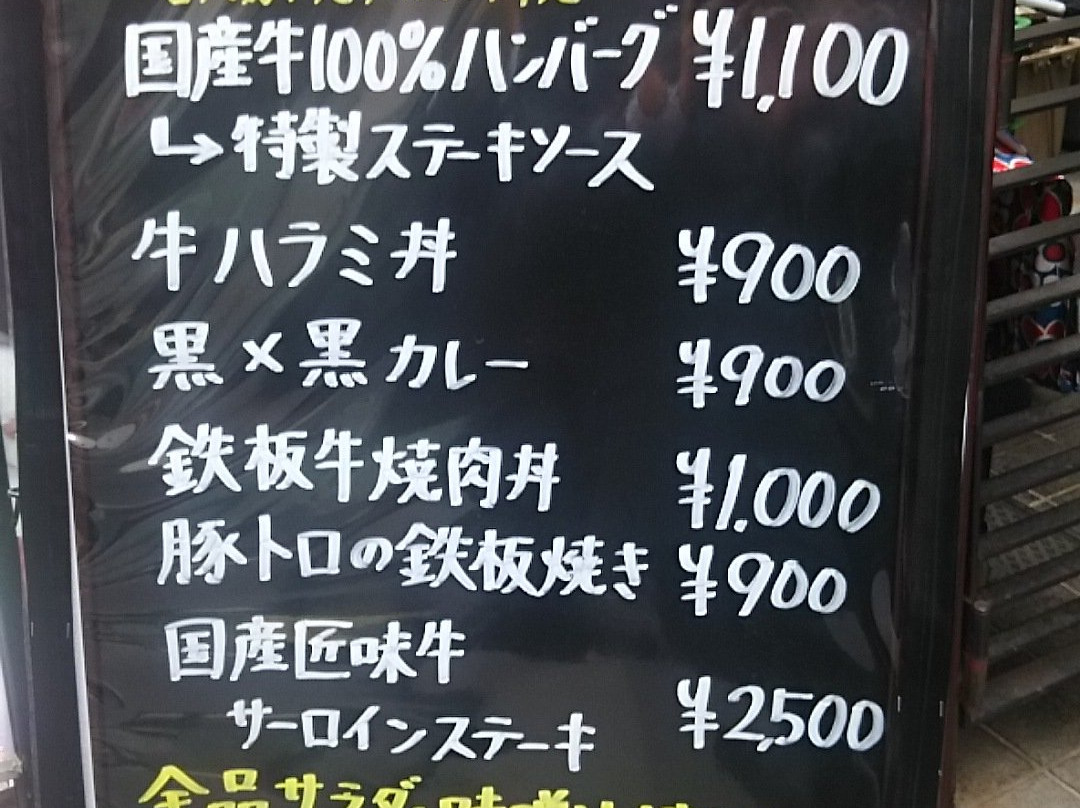 国産牛100%ハンバーグ ¥1,100
↳特製ステーキソース
牛ハラミ丼 ¥900
黒×黒カレー ¥900
鉄板牛焼肉丼 ¥1,000
豚トロの鉄板焼き ¥900
国産匠味牛
サーロインステーキ ¥2,500
全品サラダ